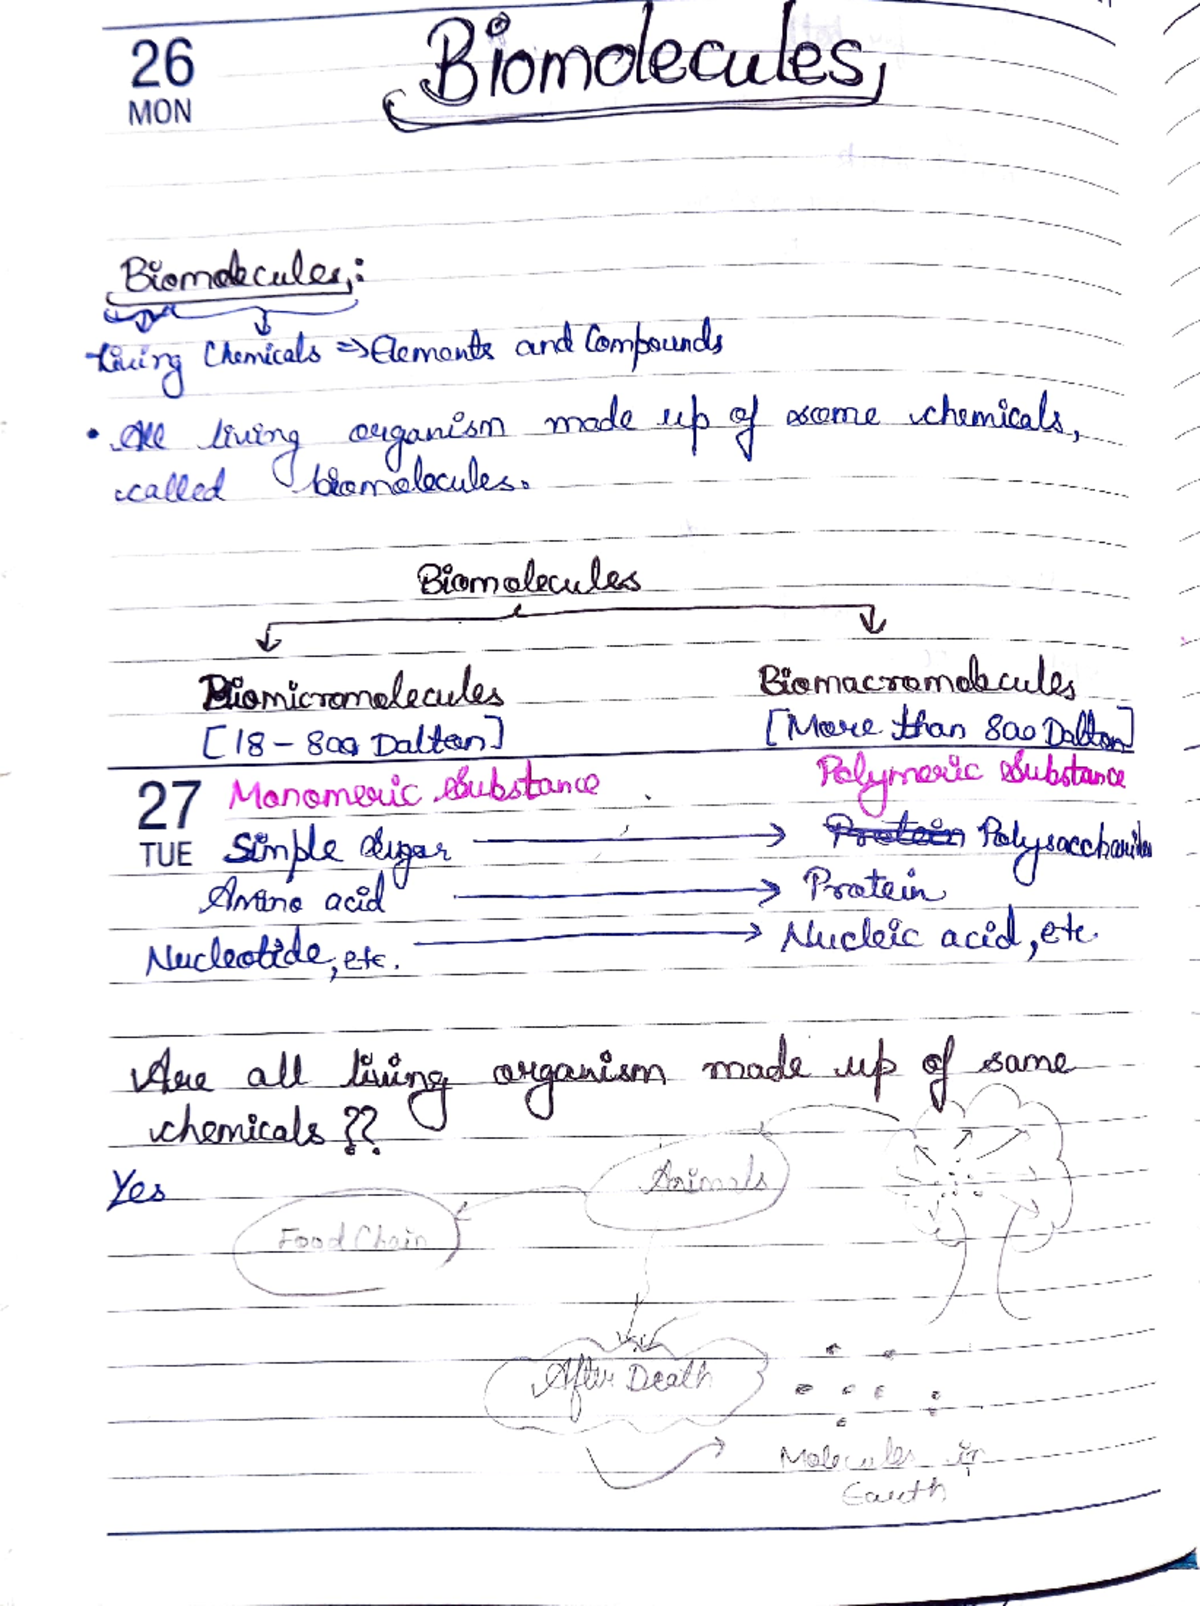 26
MON
Biomolecules
Biomolecules:
Living Chemicals => Elements and Compounds
• All living organism made up of some chemicals,
called biomolecules.
Biomolecules
Biomicromolecules Biomacromolecules
[18 - 800 Dalton] [More than 800 Dalton]
27
TUE
Monomeric Substance Polymeric Substance
Simple sugar → Protein Polysaccharides
Amino acid → Protein
Nucleotide, etc. → Nucleic acid, etc.
Are all living organism made up of same
chemicals ??
Yes
Animals
Food Chain
After Death
Molecules in
Earth